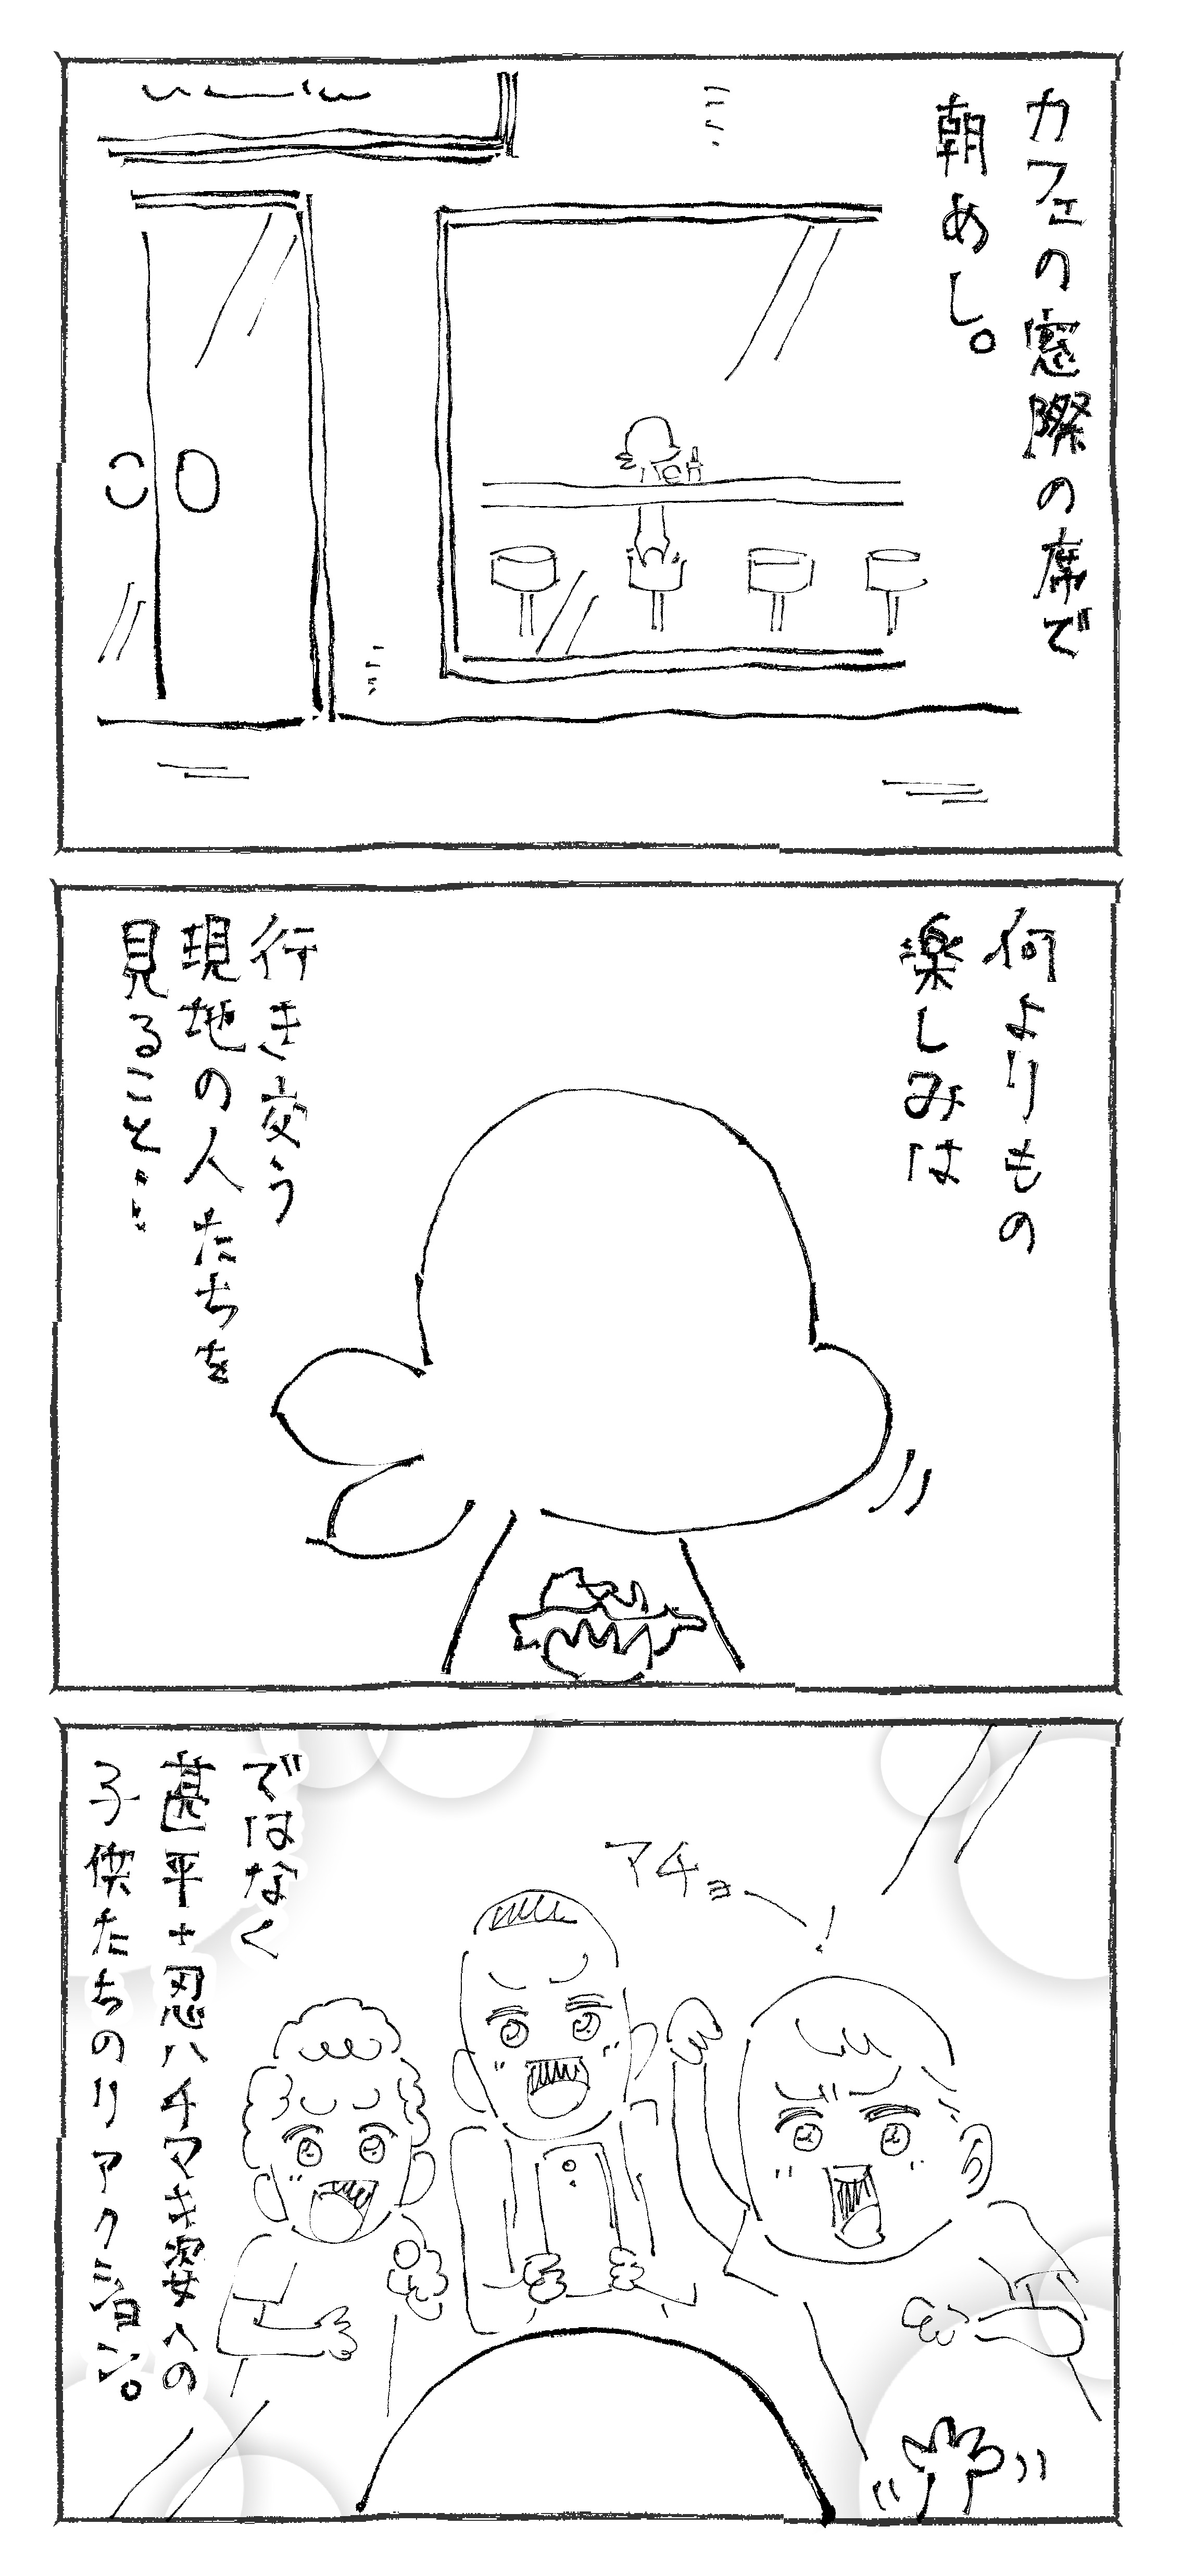 カフェの窓際の席で
朝めし。
何よりもの
楽しみは
行き交う
現地の人たちを
見ること…
アチョー!
ではなく
甚平+忍ハチマキ姿への
子供たちのリアクション。